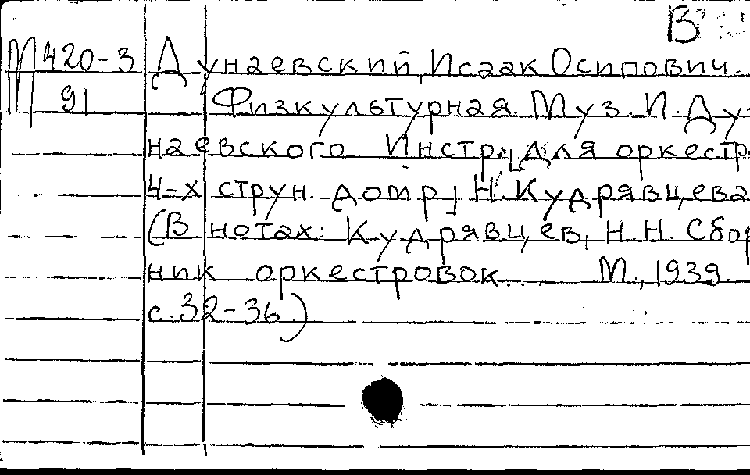 В
М 420-3 Дунаевский, Исаак Осипович.
91 Физкультурная. Муз. И. Ду-
наевского Инстр. [для оркестр
4-х струн. домр] Н. Кудрявцева
(В нотах: Кудрявцев, Н. Н. Сбор
ник оркестровок... М., 1939
с. 32-36)